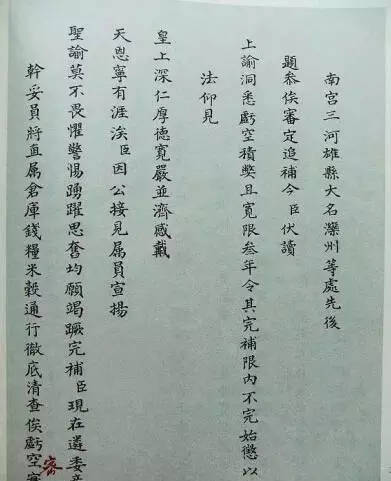 南宮三河雄縣大名灤州等處先後
題參俟審定追補今臣伏讀
上諭洞悉虧空積弊且寬限叁年令其完補限內不完始懲以
法仰見
皇上深仁厚德寬嚴並濟感戴
天恩寧有涯涘臣因公接見屬員宣揚
聖諭莫不畏懼警惕踴躍思奮均願竭蹶完補臣現在遴委
幹妥員將直屬倉庫錢糧米穀通行徹底清查俟虧空